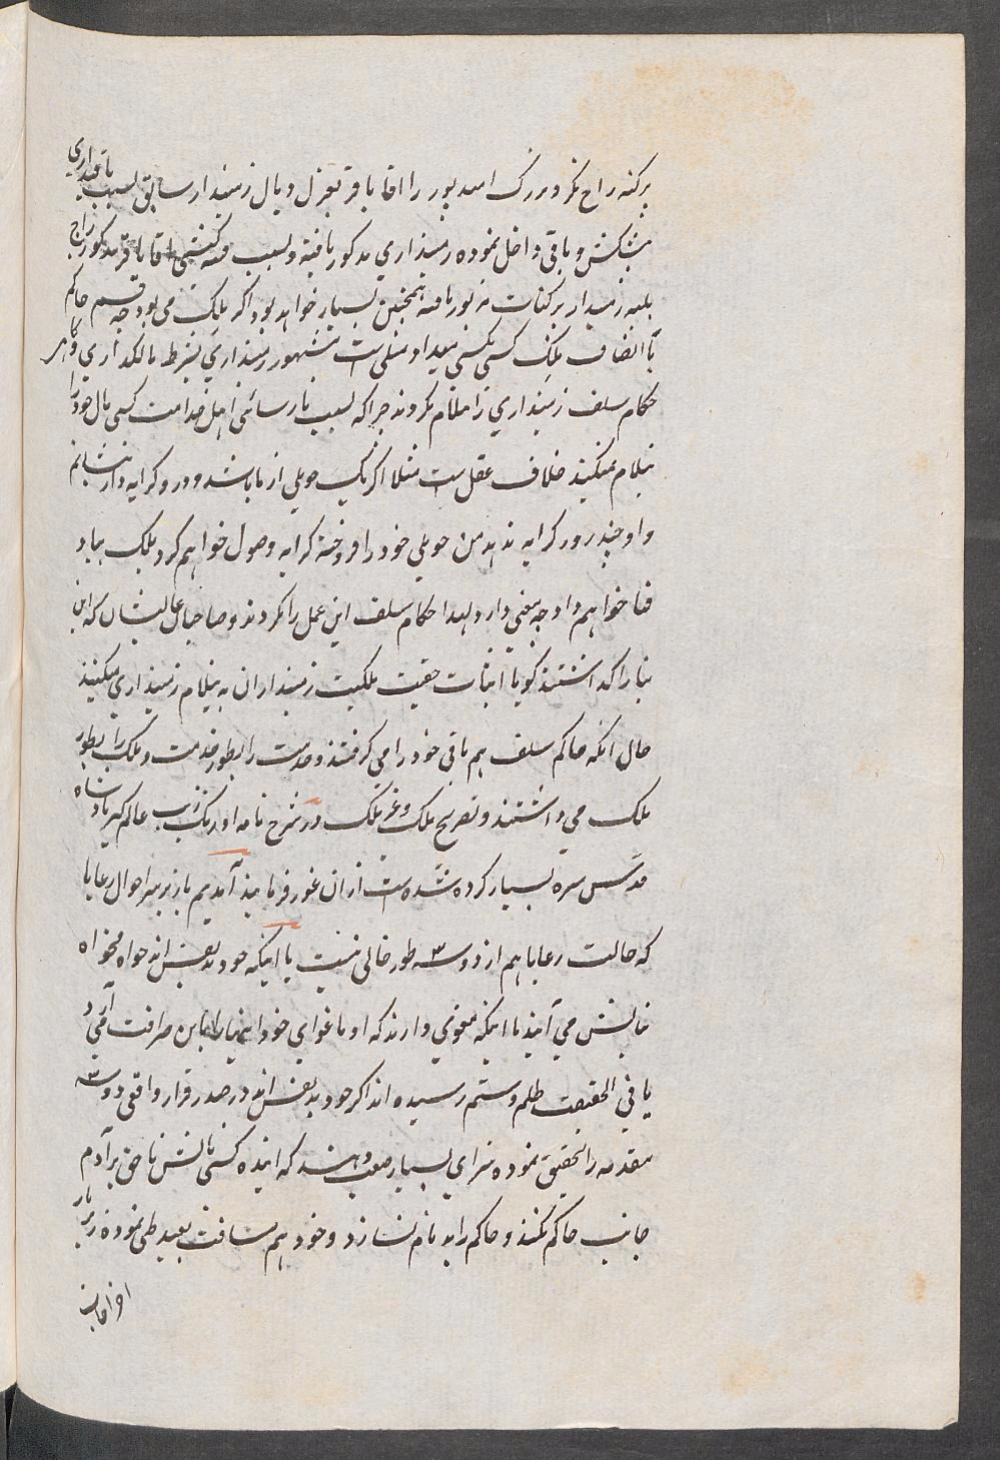 پرگنه راج نگر و بزرگ امید پور را اقا باقر بعزل دیال زمیندار سابق بسبب باقیداری
پیشکش و باقی داخل نموده زمینداری مذکور یافته و بسبب کشی اقا باقر مذکور راج
بلبه زمیندار پرگنات مزبور یافته همچنین بسیار خواهد بود اگر ملک می بود چه قسم حاکم
با انصاف ملک کسی بکسی میداد مثلی ست مشهور زمینداری بشرط مالگذاری و
حکام سلف زمینداری را نیلام نکردند چرا که بسبب نارسائی اهل خدامت کسی مال خود را
نیلام نمیکند خلاف عقل ست مثلا اگر یک حویلی از ما باشد و در و کرایه دار نشانم
و او چند روز کرایه ندهد من حویلی خود را فروخته کرایه وصول خواهم کرد بلک بباد
فنا خواهم داد چه معنی دارد لهذا حکام سلف این عمل را نکردند و صاحبان عالیشان که این
بنا را گذاشتند گویا اثبات حقیت ملکیت زمینداران به نیلام زمینداری میکنند
حال انکه حاکم سلف هم باقی خود را می گرفتند و خدمت را بطور خدمت و ملک را بطور
ملک می داشتند و تصریح ملک و غیر ملک در شرح نامه اورنگ زیب عالم گیر بادشاه
قدس سره بسیار کرده شده ست ازان غور فرمایند آمدیم باز بر سر احوال رعایا
که حالت رعایا هم از دو سه طور خالی نیست یا اینکه خود بدنفس اند خواه مخواه
نالش می آیند یا اینکه مغوی دارند که او باغوای خود اینها را باین صرافت می آرد
یا فی الحقیقت ظلم و ستم رسیده اند اگر خود بدنفس اند در صدر قرار واقعی دو سه
مقدمه را تحقیق نموده سزای بسیار صعب دهند که اینده کسی نالش ناحق بر آدم
جانب حاکم نکند و حاکم را بد نام نسازد و خود هم مسافت بعید طی نموده زیر بار
اخراجات